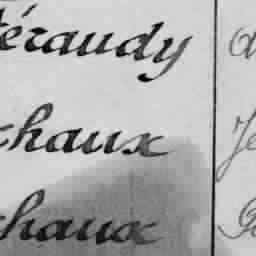 éraudy
chaux
chaux